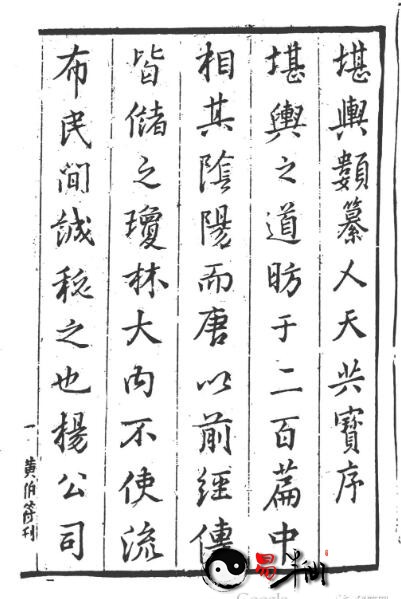 堪輿類纂人天共寶序
堪輿之道昉于二百篇中
相其陰陽而唐以前經傳
皆儲之瓊林大內不使流
布民間誠秘之也楊公司
一 黃伯符刊
易